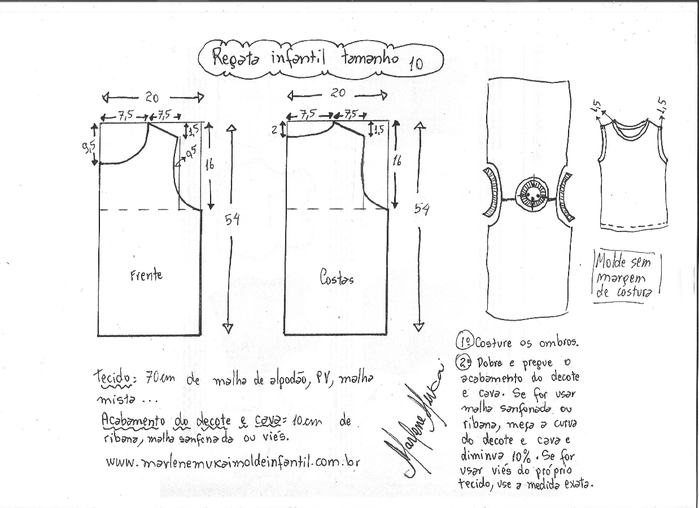 Regata infantil tamanho 10
20
7,5 7,5
1,5
9,5
0,5
16
54
Frente
20
7,5 7,5
2
1,5
16
54
Costas
1,5
1,5
Molde sem
margem
de costura
Tecido: 70cm de malha de algodão, PV, malha
mista...
Acabamento do decote e cava = 10cm de
ribana, malha sanfonada ou viés.
www.marlenemukaimoldeinfantil.com.br
Marlene Mukai
1º Costure os ombros.
2º Dobre e pregue o
acabamento do decote
e cava. Se for usar
malha sanfonada ou
ribana, meça a curva
do decote e cava e
diminua 10%. Se for
usar viés do próprio
tecido, use a medida exata.